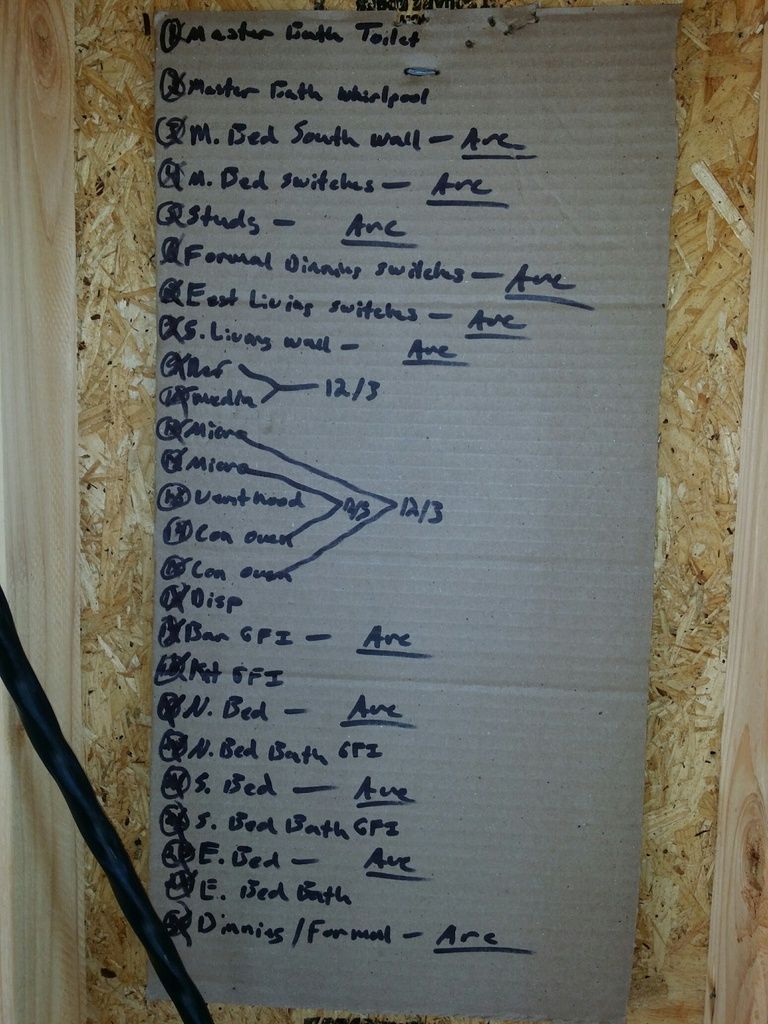 ① Master Bath Toilet
② Master Bath Whirlpool
③ M. Bed South wall - Arc
④ M. Bed switches - Arc
⑤ Study - Arc
⑥ Formal Dinning switches - Arc
⑦ East Living switches - Arc
⑧ S. Living wall - Arc
⑨ Ref
⑩ media 12/3
⑪ Micro
⑫ Micro
⑬ Vent hood 12/3 12/3
⑭ Con oven
⑮ Con oven
⑯ Disp
⑰ Bar GFI - Arc
⑱ Kit GFI
⑲ N. Bed - Arc
⑳ N. Bed Bath GFI
㉑ S. Bed - Arc
㉒ S. Bed Bath GFI
㉓ E. Bed - Arc
㉔ E. Bed Bath
㉕ Dinning/Formal - Arc